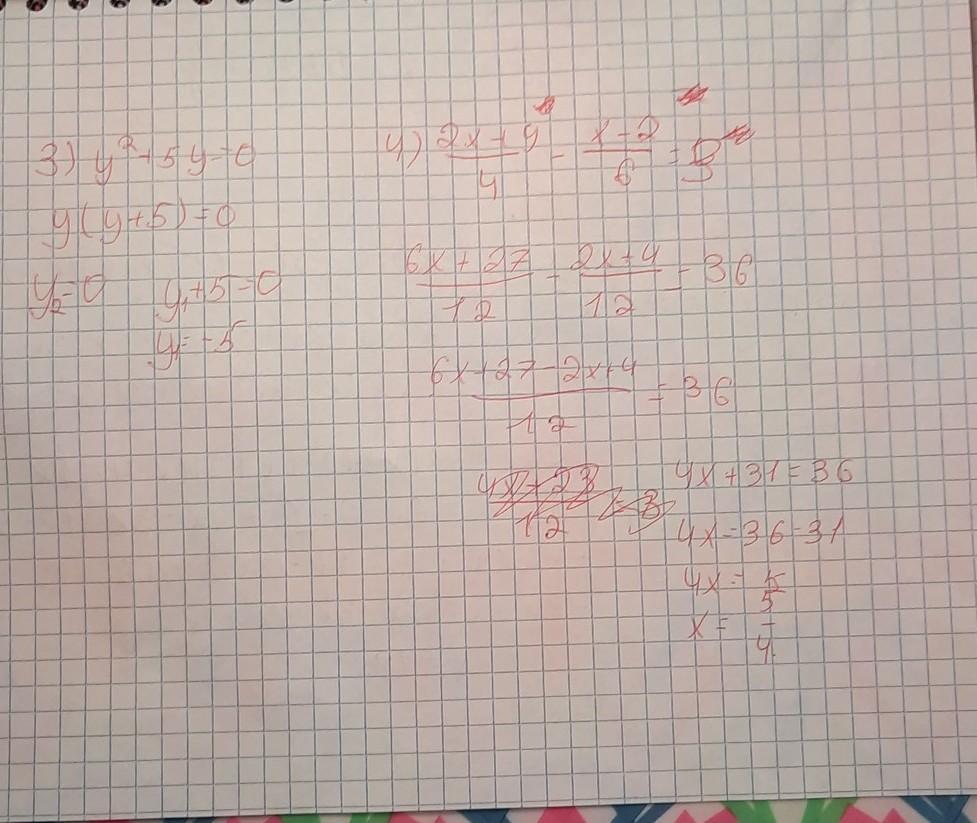 3) y²+5y=0
y(y+5)=0
y₂=0 y₁+5=0
y₁=-5
4) (2x+9)/4 - (x-2)/6 = 3
(6x+27)/12 - (2x+4)/12 = 36
(6x+27-2x+4)/12 = 36
4x+31=36
4x=36-31
4x=5
x=5/4